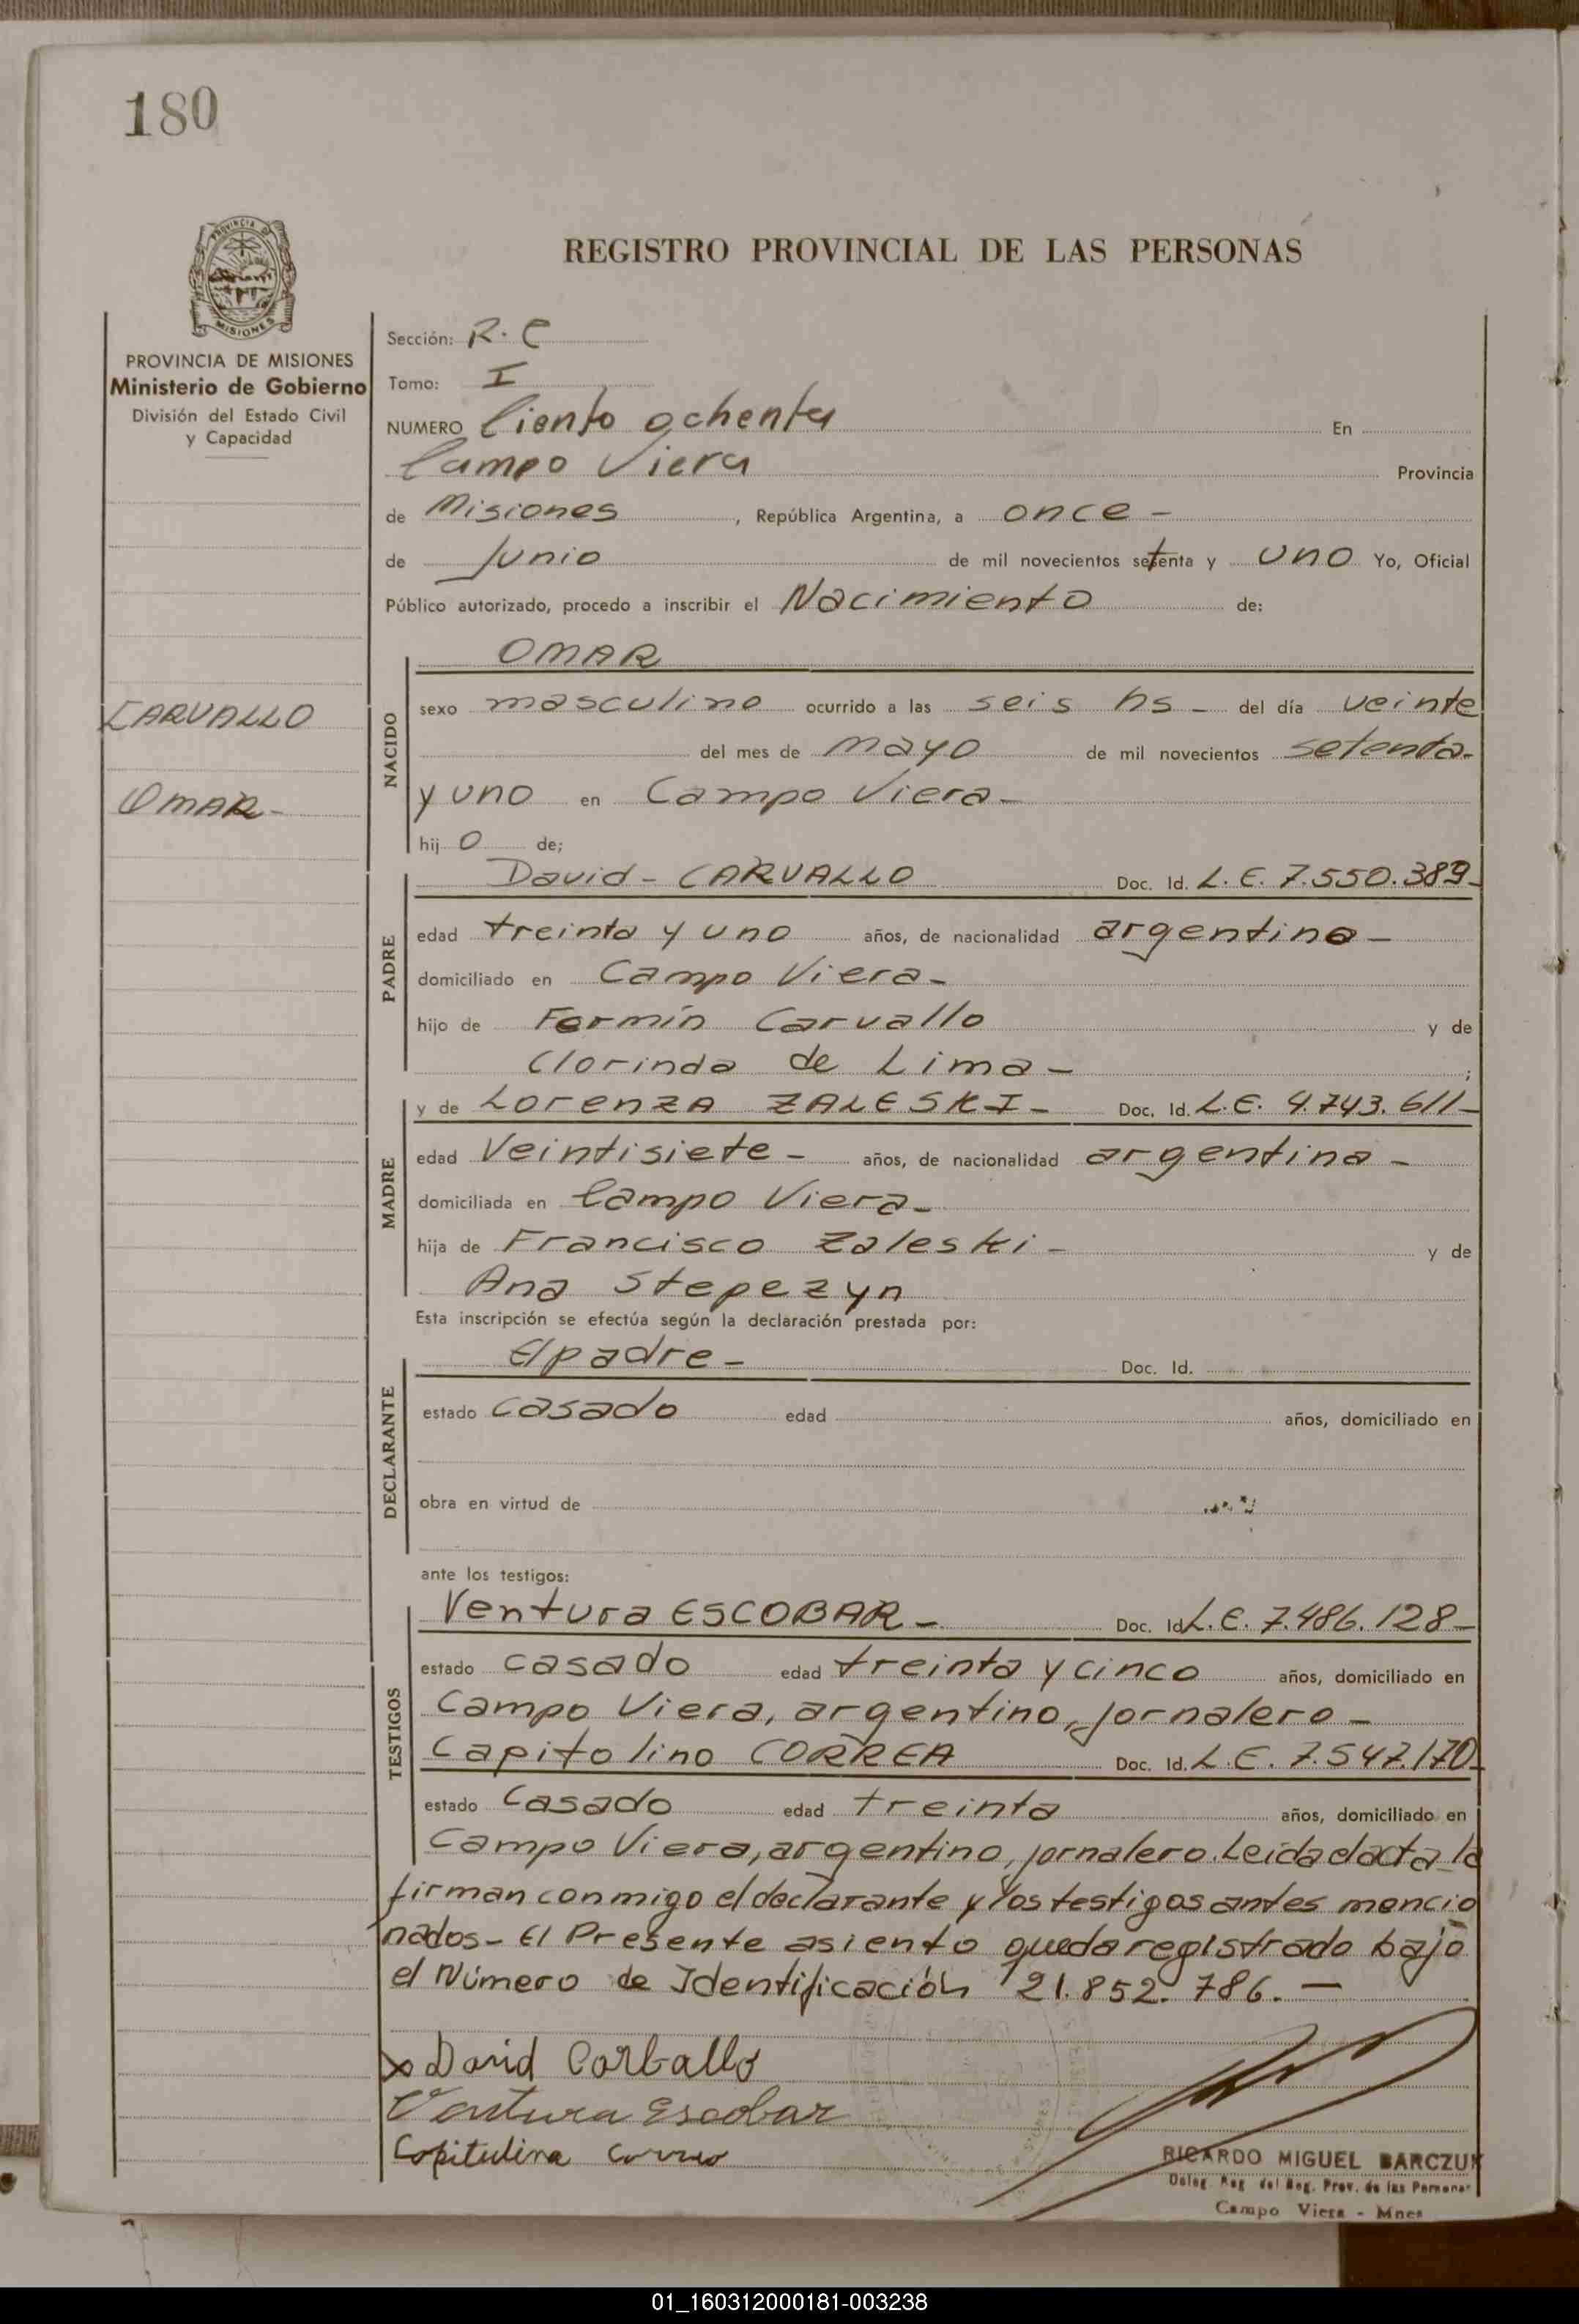 180
PROVINCIA DE MISIONES
Ministerio de Gobierno
División del Estado Civil
y Capacidad
CARVALLO
OMAR-
REGISTRO PROVINCIAL DE LAS PERSONAS
Sección: R. C
Tomo: I
NUMERO Ciento ochenta En
Campo Viera Provincia
de Misiones, República Argentina, a once -
de Junio de mil novecientos setenta y uno Yo, Oficial
Público autorizado, procedo a inscribir el Nacimiento de:
NACIDO
OMAR
sexo masculino ocurrido a las seis hs - del día veinte
del mes de mayo de mil novecientos setenta-
y uno en Campo Viera-
hijo de;
PADRE
David - CARVALLO Doc. Id. L. E. 7.550.389-
edad treinta y uno años, de nacionalidad argentino-
domiciliado en Campo Viera-
hijo de Fermín Carvallo y de
Clorinda de Lima- ;
MADRE
y de Lorenza ZALESKI- Doc. Id. L.E. 4.743.611-
edad Veintisiete- años, de nacionalidad argentina-
domiciliada en Campo Viera-
hija de Francisco Zaleski- y de
Ana Stepezyn
Esta inscripción se efectúa según la declaración prestada por:
DECLARANTE
El padre- Doc. Id.
estado casado edad años, domiciliado en
obra en virtud de
ante los testigos:
TESTIGOS
Ventura ESCOBAR- Doc. Id. L.E. 7.486.128-
estado casado edad treinta y cinco años, domiciliado en
Campo Viera, argentino, jornalero-
Capitolino CORREA Doc. Id. L.E. 7.547.170-
estado Casado edad treinta años, domiciliado en
Campo Viera, argentino, jornalero. Leida el acta la
firman conmigo el declarante y los testigos antes mencio
nados- El Presente asiento queda registrado bajo
el Número de Identificación 21.852.786.-
David Carballo
Ventura Escobar
Capitulina Correa
RICARDO MIGUEL BARCZUK
Deleg. Reg. del Reg. Prov. de las Personas
Campo Viera - Mnes
01_160312000181-003238